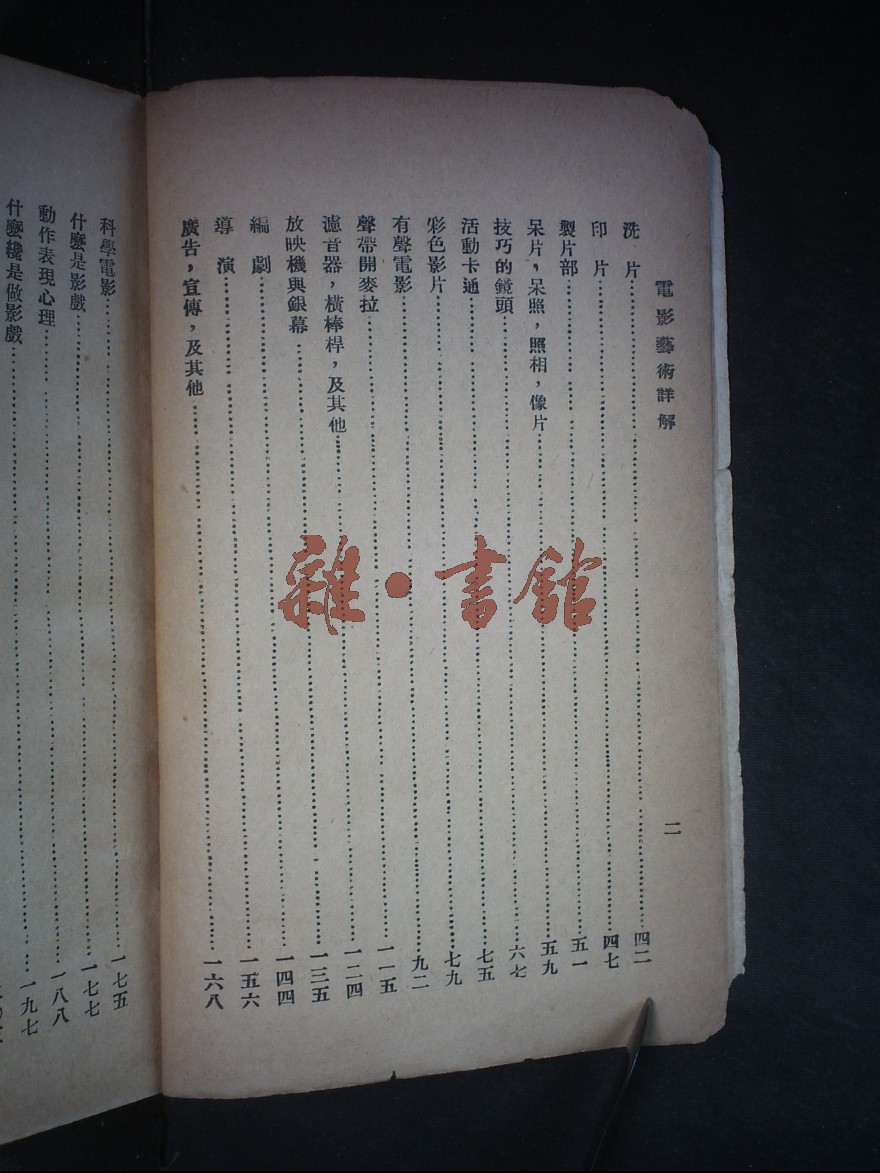 電影藝術詳解 二
洗片……四二
印片……四七
製片部……五一
呆片，呆照，照相，像片……五九
技巧的鏡頭……六七
活動卡通……七五
彩色影片……七九
有聲電影……九二
聲帶開麥拉……一一五
濾音器，橫棒桿，及其他……一二四
放映機與銀幕……一三五
編劇……一四四
導演……一五六
廣告，宣傳，及其他……一六八
科學電影……一七五
什麼是影戲……一七七
動作表現心理……一八八
什麼纔是做影戲……一九七
雜·書館